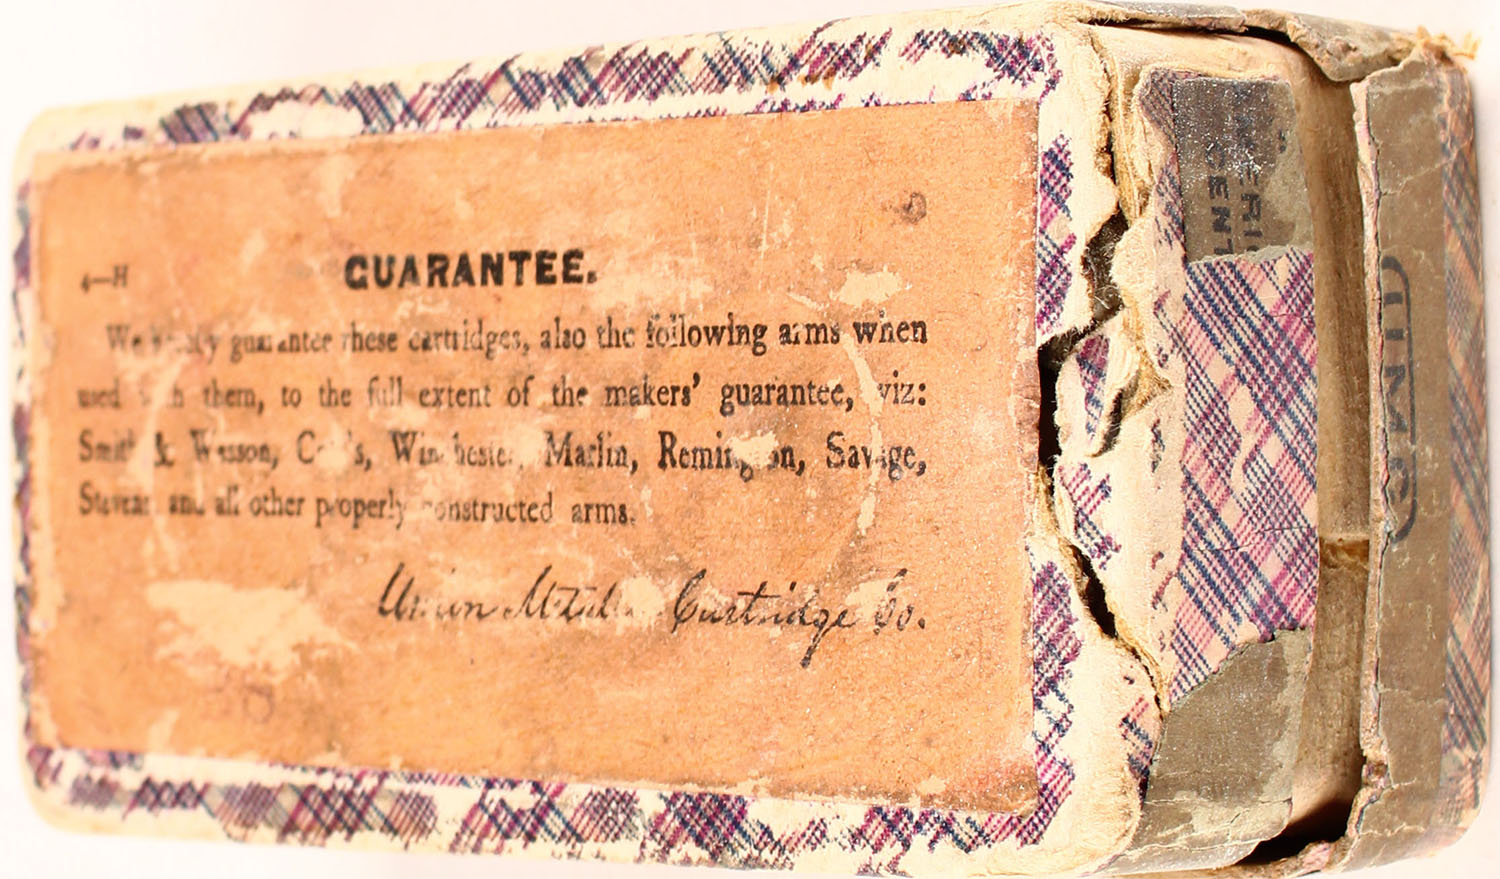 4—H
GUARANTEE.
We guarantee these cartridges, also the following arms when
used with them, to the full extent of the makers' guarantee, viz:
Smith & Wesson, Colt's, Winchester, Marlin, Remington, Savage,
Stevens and all other properly constructed arms.
Union Metallic Cartridge Co.
CENT
UMC